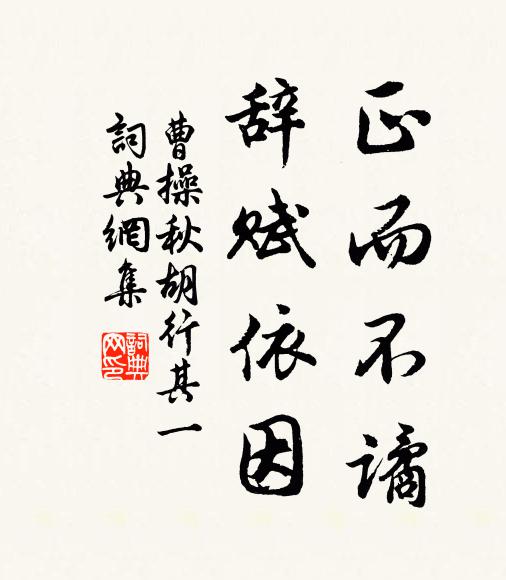 正而不谲
辞赋依因
曹操秋胡行其一
詞典網集
詞典網印